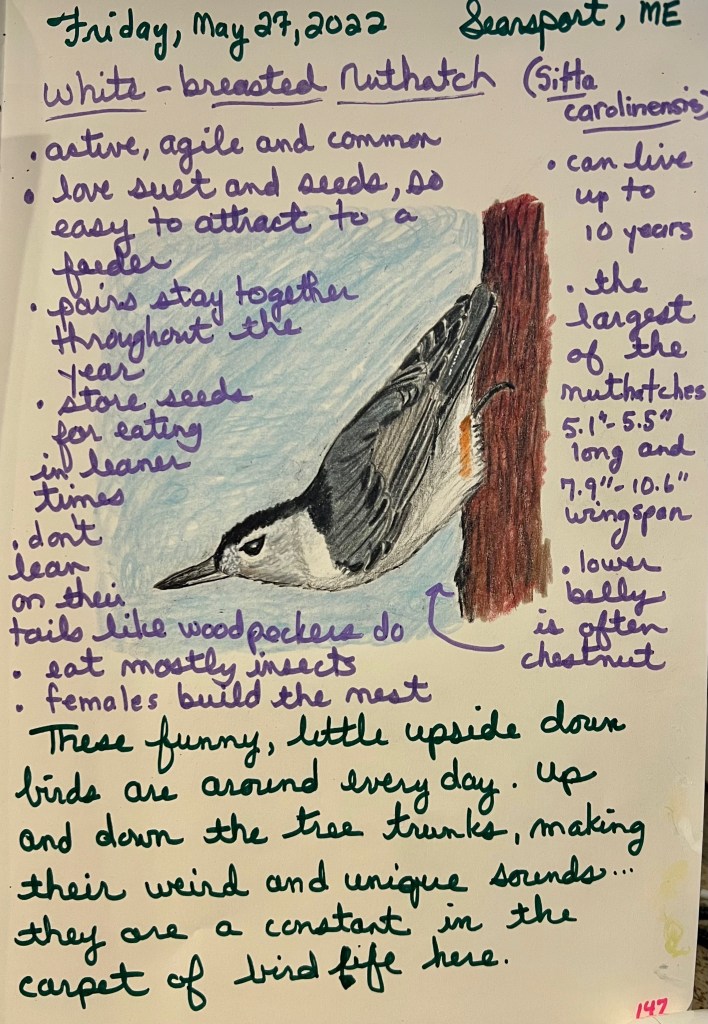 Friday, May 27, 2022 Searsport, ME
White-breasted Nuthatch (Sitta
carolinensis)
• active, agile and common
• love suet and seeds, so
easy to attract to a
feeder
• pairs stay together
throughout the
year
• store seeds
for eating
in leaner
times
• don't
lean
on their
tails like woodpeckers do
• eat mostly insects
• females build the nest
• can live
up to
10 years
• the
largest
of the
nuthatches
5.1"-5.5"
long and
7.9"-10.6"
wingspan
• lower
belly
is often
chestnut
These funny, little upside down
birds are around every day. Up
and down the tree trunks, making
their weird and unique sounds...
they are a constant in the
carpet of bird life here.
147